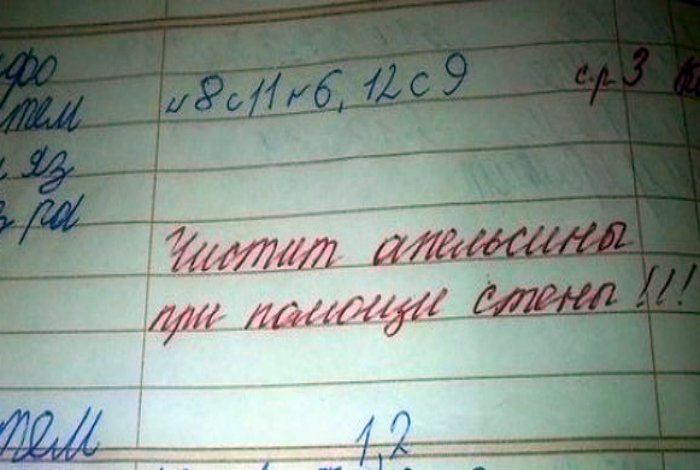 тем
№8 с11 №6, 12 с 9
с.р 3
яз
Чистит апельсины
при помощи стены!!!
тем
1,2